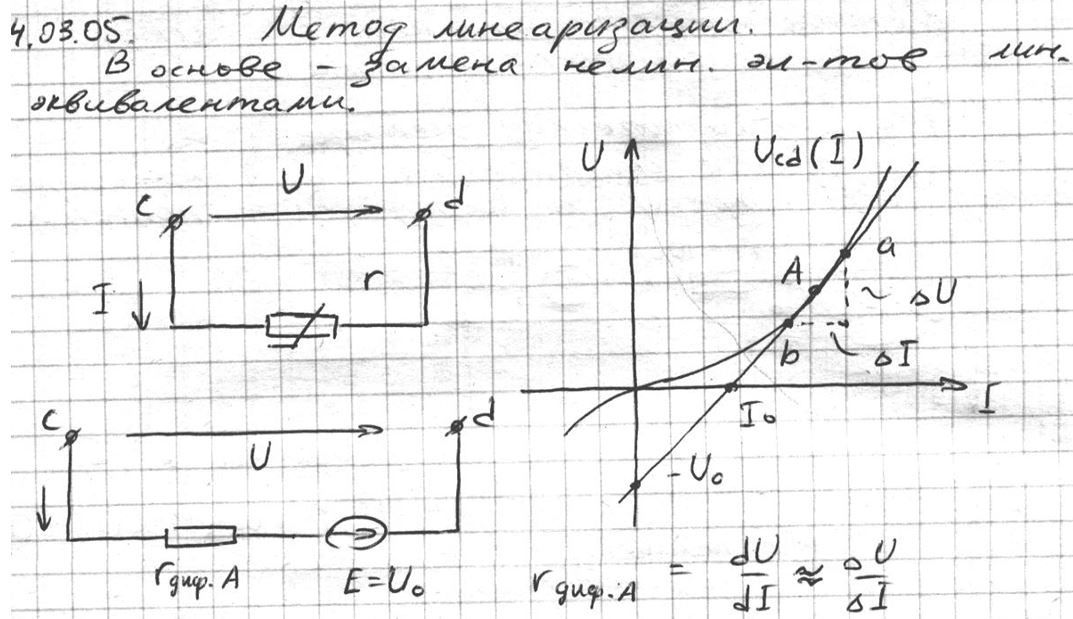 4.03.05. Метод линеаризации.
В основе - замена нелин. эл-тов лин.
эквивалентами.
U
Ucd(I)
c
U
d
I
r
A
a
ΔU
b
ΔI
I₀
I
c
d
U
-U₀
rдиф.A
E=U₀
rдиф.A = dU/dI ≈ ΔU/ΔI